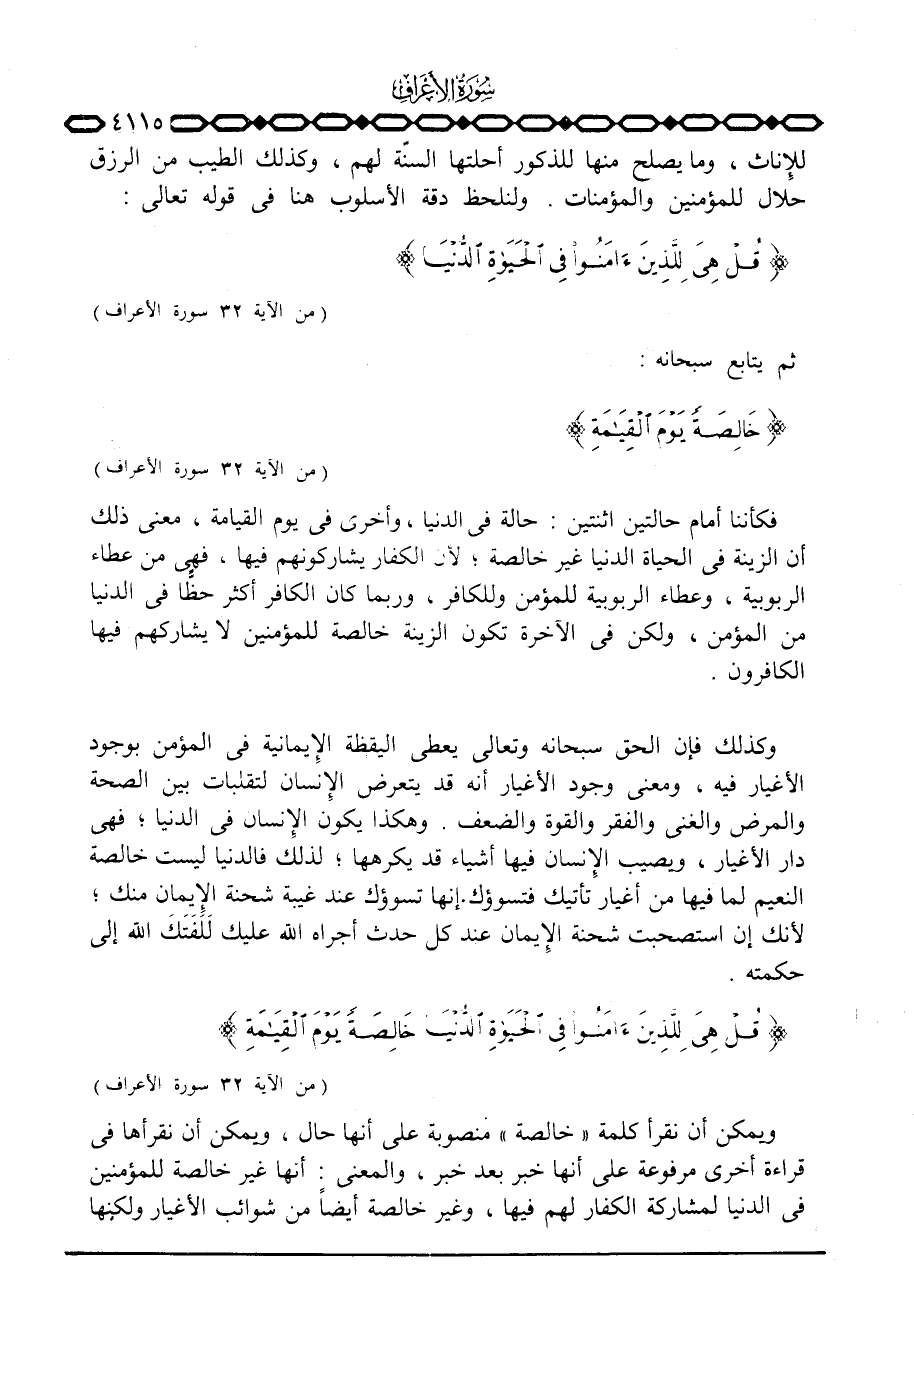 سُورَةُ الأَعْرَافِ
٤١١٥
للإناث ، وما يصلح منها للذكور أحلتها السنّة لهم ، وكذلك الطيب من الرزق
حلال للمؤمنين والمؤمنات . ولنلحظ دقة الأسلوب هنا فى قوله تعالى :
﴿ قُلْ هِىَ لِلَّذِينَ ءَامَنُوا۟ فِى ٱلْحَيَوٰةِ ٱلدُّنْيَا ﴾
( من الآية ٣٢ سورة الأعراف )
ثم يتابع سبحانه :
﴿ خَالِصَةً يَوْمَ ٱلْقِيَـٰمَةِ ﴾
( من الآية ٣٢ سورة الأعراف )
فكأننا أمام حالتين اثنتين : حالة فى الدنيا ، وأخرى فى يوم القيامة ، معنى ذلك
أن الزينة فى الحياة الدنيا غير خالصة ؛ لأن الكفار يشاركونهم فيها ، فهى من عطاء
الربوبية ، وعطاء الربوبية للمؤمن وللكافر ، وربما كان الكافر أكثر حظًّا فى الدنيا
من المؤمن ، ولكن فى الآخرة تكون الزينة خالصة للمؤمنين لا يشاركهم فيها
الكافرون .
وكذلك فإن الحق سبحانه وتعالى يعطى اليقظة الإيمانية فى المؤمن بوجود
الأغيار فيه ، ومعنى وجود الأغيار أنه قد يتعرض الإنسان لتقلبات بين الصحة
والمرض والغنى والفقر والقوة والضعف . وهكذا يكون الإنسان فى الدنيا ؛ فهى
دار الأغيار ، ويصيب الإنسان فيها أشياء قد يكرهها ؛ لذلك فالدنيا ليست خالصة
النعيم لما فيها من أغيار تأتيك فتسوؤك.إنها تسوؤك عند غيبة شحنة الإيمان منك ؛
لأنك إن استصحبت شحنة الإيمان عند كل حدث أجراه الله عليك لَلَفَتَكَ الله إلى
حكمته .
﴿ قُلْ هِىَ لِلَّذِينَ ءَامَنُوا۟ فِى ٱلْحَيَوٰةِ ٱلدُّنْيَا خَالِصَةً يَوْمَ ٱلْقِيَـٰمَةِ ﴾
( من الآية ٣٢ سورة الأعراف )
ويمكن أن نقرأ كلمة « خالصة » منصوبة على أنها حال ، ويمكن أن نقرأها فى
قراءة أخرى مرفوعة على أنها خبر بعد خبر ، والمعنى : أنها غير خالصة للمؤمنين
فى الدنيا لمشاركة الكفار لهم فيها ، وغير خالصة أيضاً من شوائب الأغيار ولكنها